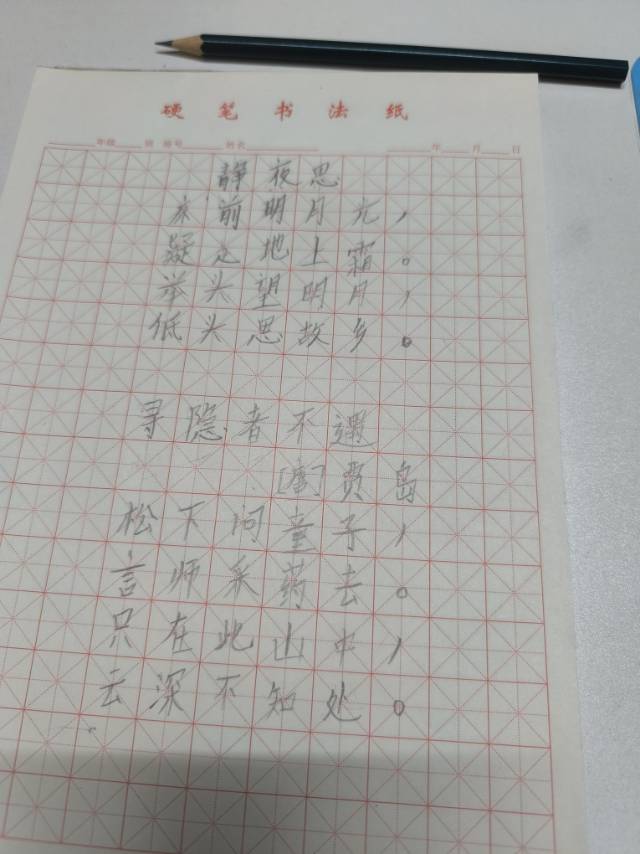 硬笔书法纸
年级 班 姓名 年 月 日
静夜思
床前明月光，
疑是地上霜。
举头望明月，
低头思故乡。
寻隐者不遇
[唐]贾岛
松下问童子，
言师采药去。
只在此山中，
云深不知处。